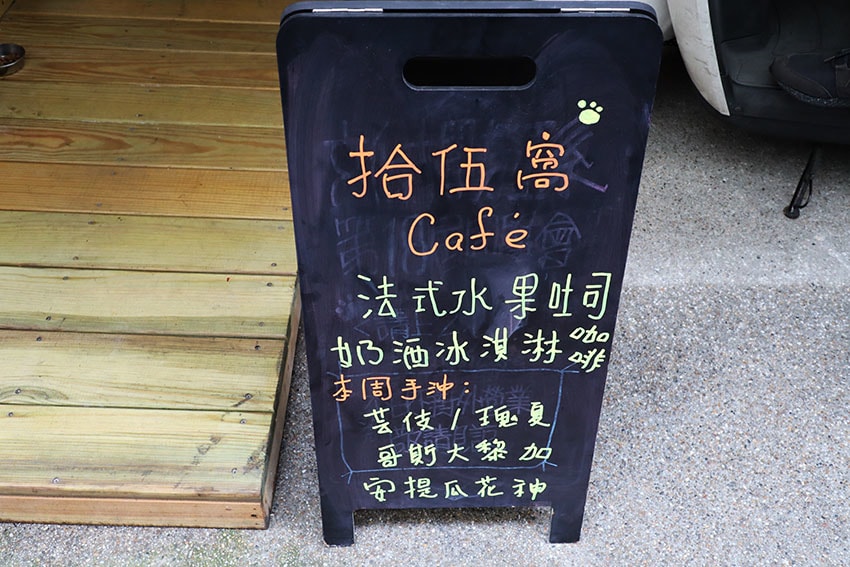 拾伍窩
Café
法式水果吐司
奶酒冰淇淋咖啡
本周手沖：
芸伎/瑰夏
哥斯大黎加
安提瓜花神